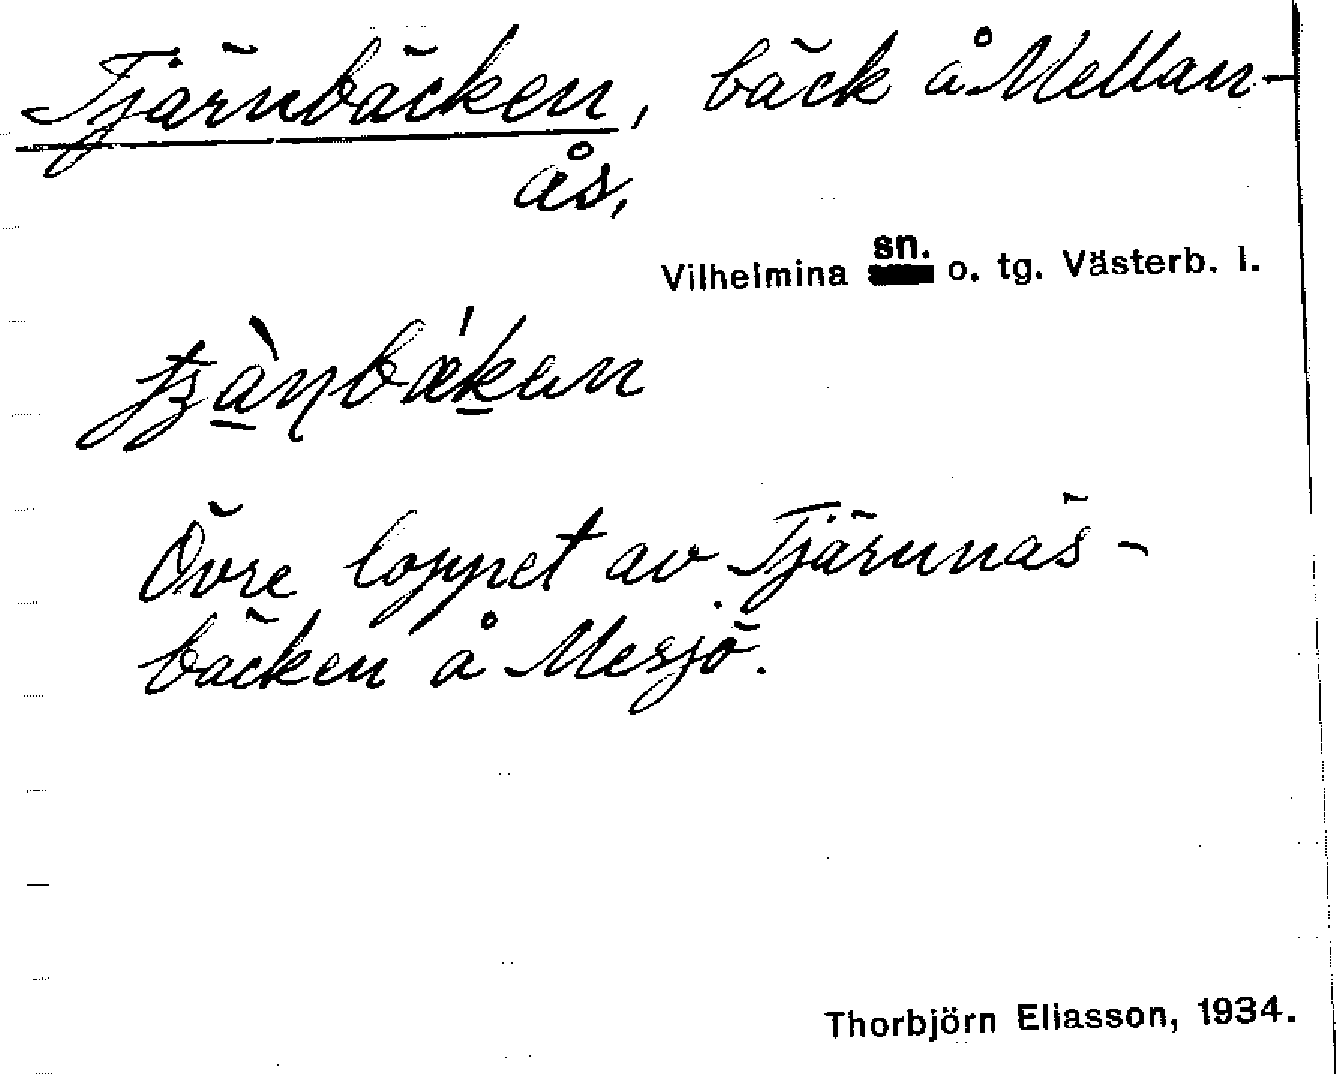 Tjärnbäcken, bäck å Mellan-
ås,
Vilhelmina sn. o. tg. Västerb. l.
Övre loppet av Tjärnnäs-
bäcken å Mesjö.
Thorbjörn Eliasson, 1934.